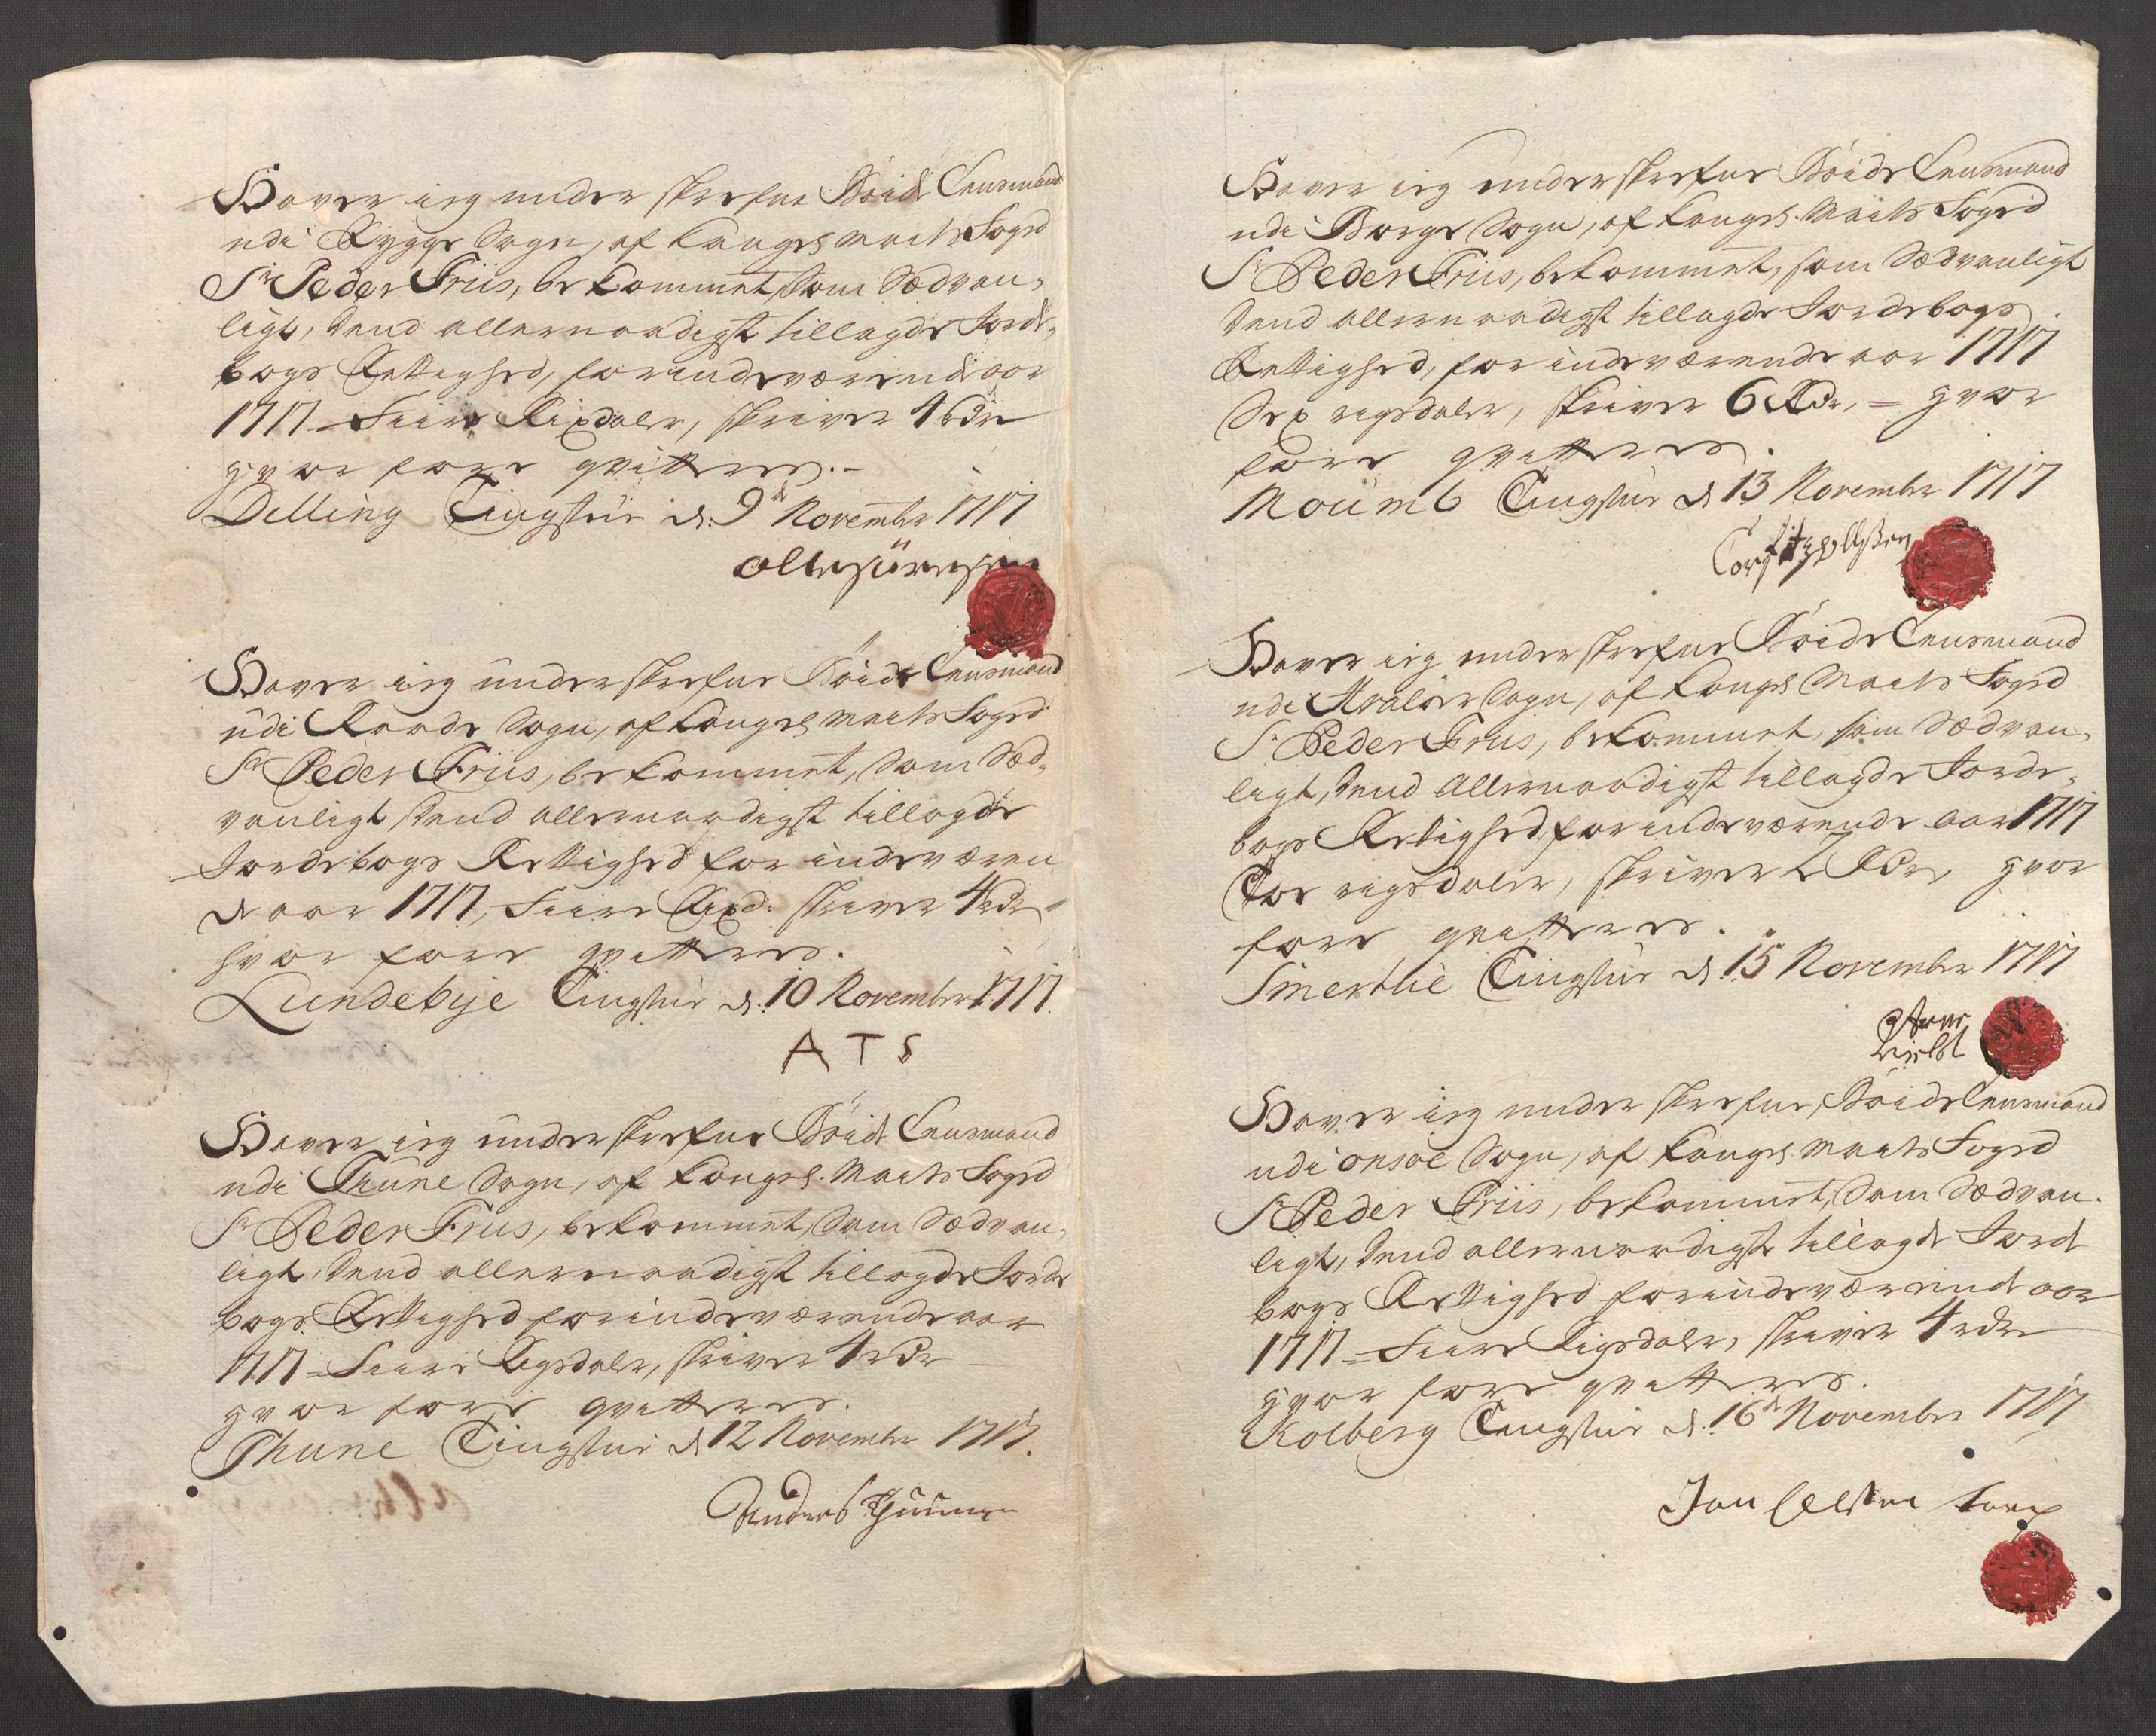 Haver ieg under skrefne Böide Lensmand
udi Rygge Sogn, af Kongel Maÿts Foged
Sr Peder Friis, bekommet, Som Sædvan,
ligt, dend allernaadigst tillagde Jorde,
bogs Rettighed, for indeværende aar
1717 - Fiire Rixdaler, skriver 4 rdr
hvor fore qvitteres. -
Dilling Tingstue d. 9de Novembr 1717
Olle

Haver ieg underskrefne Böide Lensmand
udi Raade Sogn, af Kongel Maÿts Foged
Sr Peder Friis, bekommet, Som Sæd,
vanligt dend allernaadigst tillagde
Jordebogs Rettighed for indeværen
de aar 1717, Fiire Rixd: skriver 4 rdr
hvor fore qvitteres.
Lundebye Tingstue d. 10 Novembr 1717.
A T S

Haver ieg underskrefne Böide Lensmand
udi Thune Sogn, af Kongel. Maÿts Foged
Sr Peder Friis, bekommet, Som Sædvan,
ligt, dend allernaadigst tillagde Jorde
bogs Rettighed for indeværende aar
1717 = Fiire Rigsdaler, skriver 4 rdr
hvor fore qvitteres.
Thune Tingstue d 12 Novembr 1717.
Anders

Haver ieg underskrefne Böide Lensmand
udi Borge Sogn, af Kongel. Maÿts Foged
Sr Peder Friis, bekommet, som Sædvanligt
dend allernaadigst tillagde Jordebogs
Rettighed, for indeværende aar 1717
Sex rigsdaler, skriver 6 Rdr, = hvor
fore qvitteres.
Moumb Tingstue d 13 Novembr 1717

Haver ieg underskrefne Böide Lensmand
udi Hvalöer Sogn, af Kongel Maÿts Foged
Sr Peder Friis, bekommet, som Sædvan,
ligt, dend Allernaadigst tillagde Jorde,
bogs Rettighed, for indeværende aar 1717
Toe rigsdaler, skriver 2 Rdr, hvor
fore qvitteres.
Smertlie Tingstue d. 15 Novembr 1717

Haver ieg underskrefne, Böide Lensmand
udi onsöe Sogn, af Kongel. Maÿts Foged
Sr Peder Friis, bekommet, Som Sædvan.
ligt, dend allernaadigst tillagde Jorde
bogs Rettighed for indeværende aar
1717 = Fiire Rigsdaler, skriver 4 rdr
hvor fore qvitteres.
Kolberg Tingstue d. 16de Novembr 1717